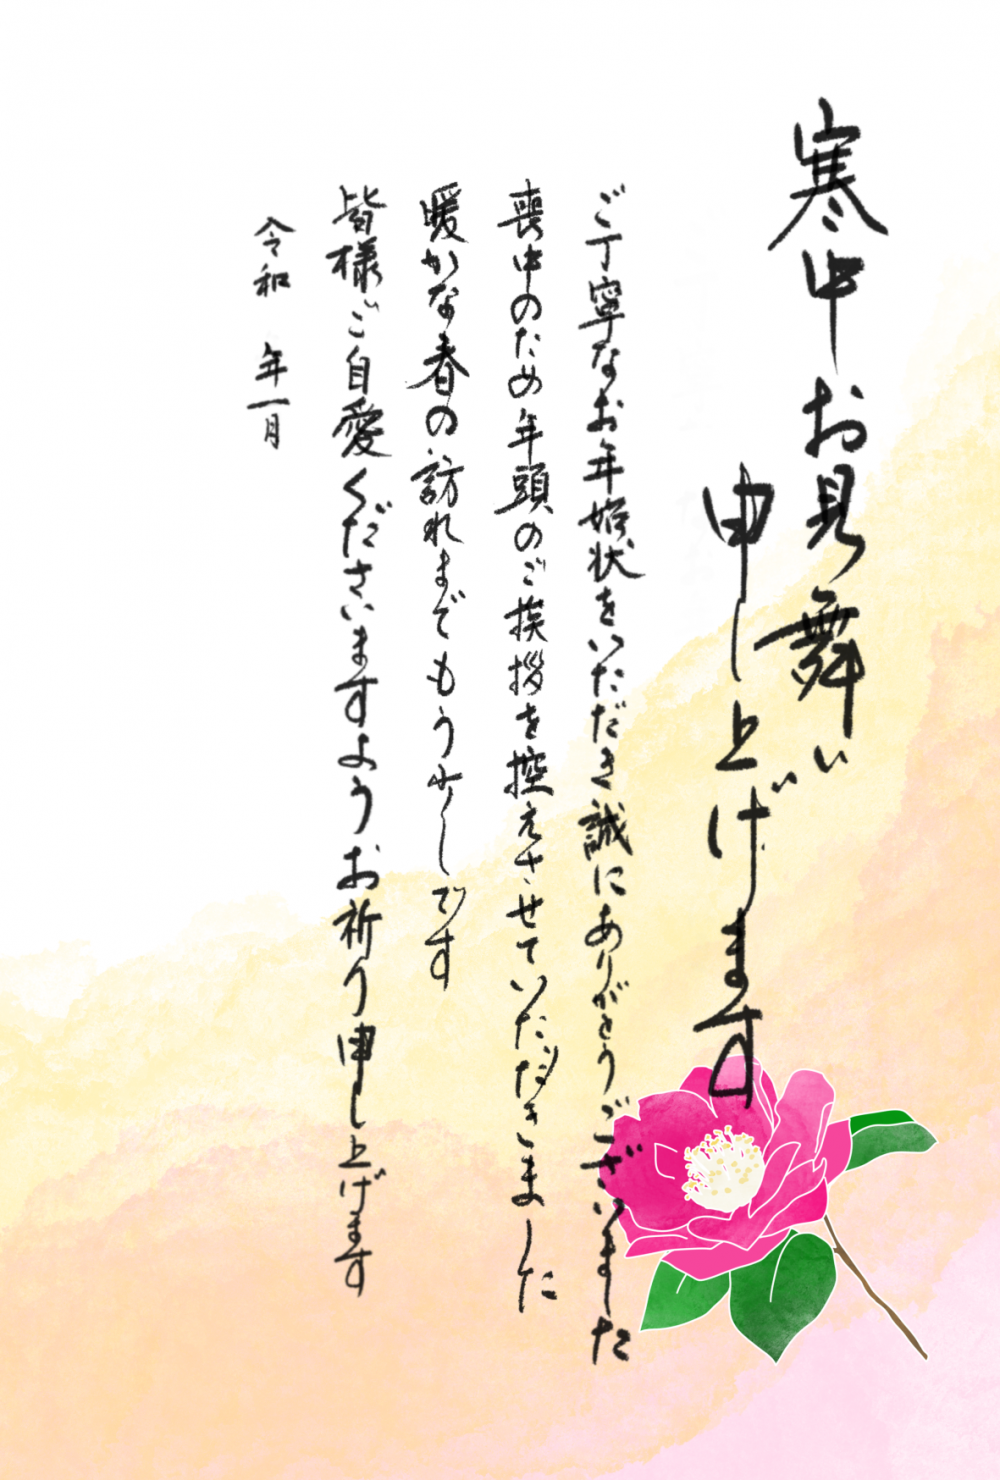 寒中お見舞い
申し上げます
ご丁寧なお年始状をいただき誠にありがとうございました
喪中のため年頭のご挨拶を控えさせていただきました
暖かな春の訪れまでもう少しです
皆様ご自愛くださいますようお祈り申し上げます
令和 年一月